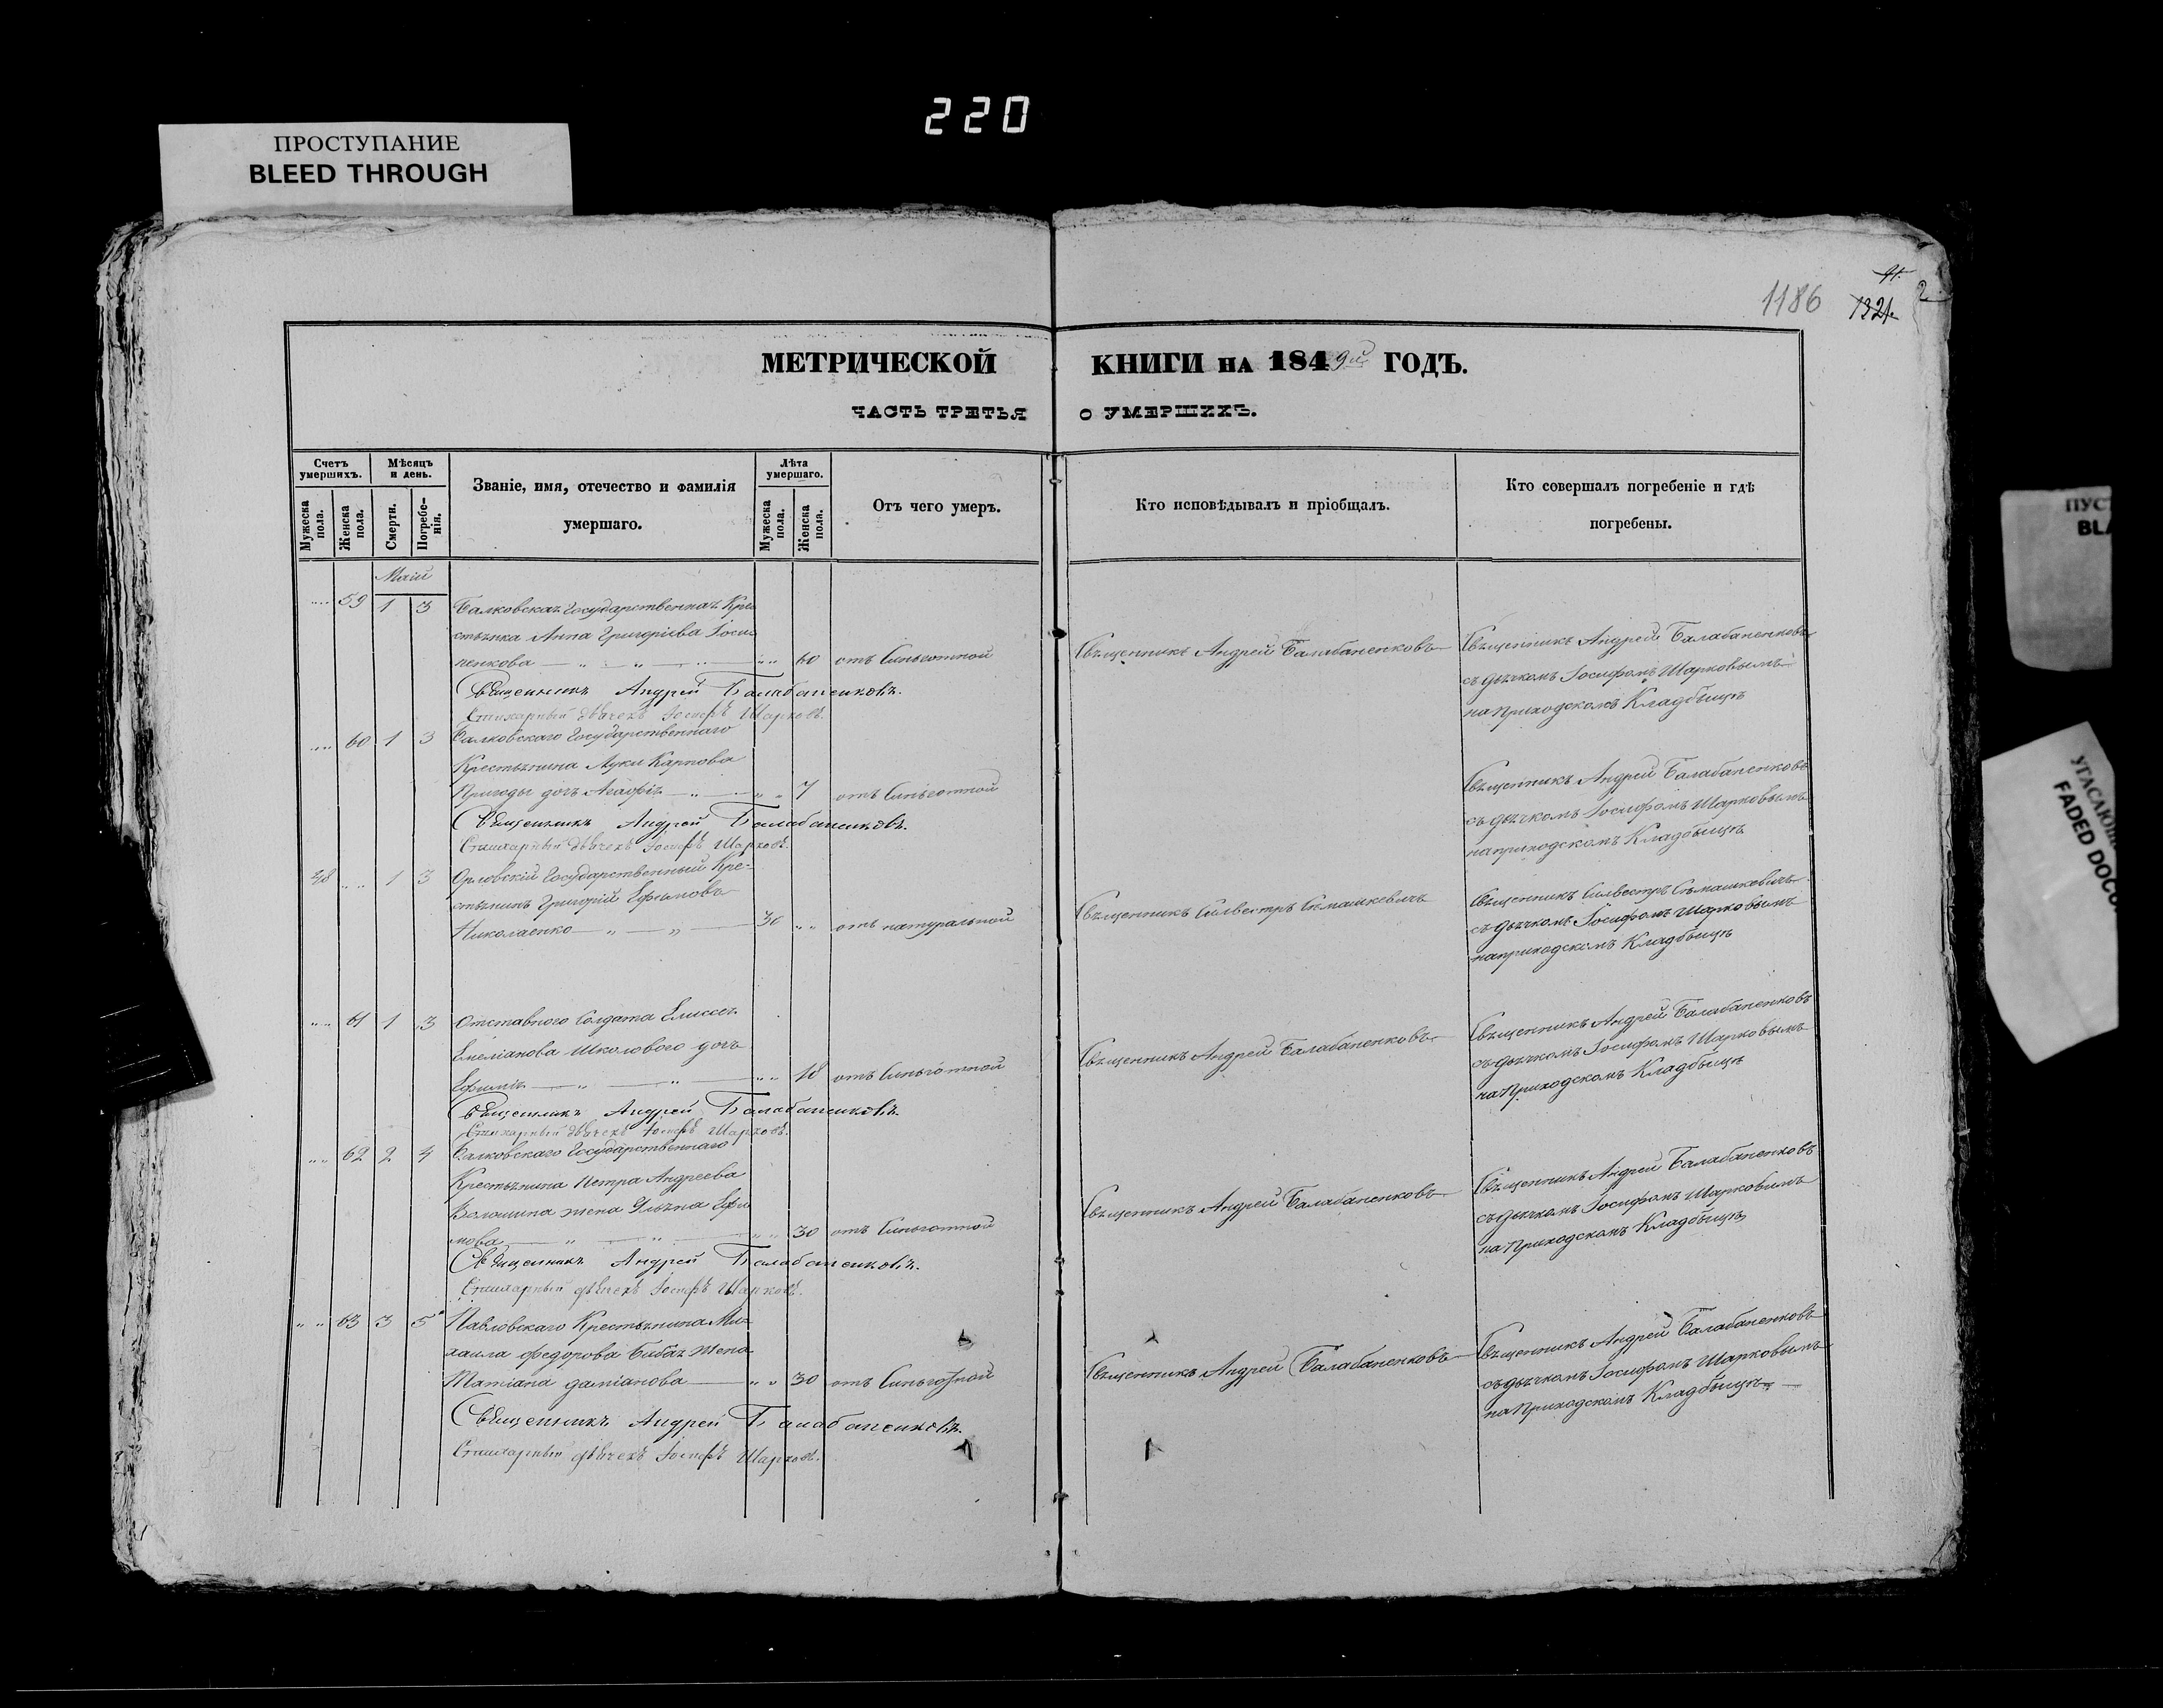 220
ПРОСТУПАНИЕ
BLEED THROUGH
1186
1321
МЕТРИЧЕСКОЙ КНИГИ НА 1849й ГОДЪ.
ЧАСТЬ ТРЕТЬЯ О УМЕРШИХЪ.
Счетъ умершихъ.
Мужеска пола.
Женска пола.
Мѣсяцъ и день.
Смерти.
Погребенія.
Званіе, имя, отечество и фамилія
умершаго.
Лѣта умершаго.
Мужеска пола.
Женска пола.
Отъ чего умеръ.
Кто исповѣдывалъ и пріобщалъ.
Кто совершалъ погребеніе и гдѣ
погребены.
Маій
59 1 3 Балковская Государственная Кре
стьянка Анна Григоріева
пенкова 60 отъ Синьготной
Священникъ Андрей Балабаненковъ
Священникъ Андрей Балабаненковъ
съ дьячкомъ Іосифомъ Шарковымъ
на приходскомъ Кладбищѣ
Священникъ Андрей Балабаненковъ.
Стихарный дьячекъ Іосифъ Шарковъ.
60 1 3 Балковскаго Государственнаго
Крестьянина Луки Карпова
Пригоды дочь Агафія 7 отъ Синьготной
Священникъ Андрей Балабаненковъ
съ дьячкомъ Іосифомъ Шарковымъ
на приходскомъ Кладбищѣ
Священникъ Андрей Балабаненковъ.
Стихарный дьячекъ Іосифъ Шарковъ.
48 1 3 Орловскій Государственный Кре-
стьянинъ Григорій Ефимовъ
Николаенко 30 отъ натуральной
Священникъ Силвестръ Сѣмашкевичъ
Священникъ Силвестръ Сѣмашкевичъ
съ дьячкомъ Іосифомъ Шарковымъ
на приходскомъ Кладбищѣ
61 1 3 Отставного Солдата Елиссея
Емеліанова Школового дочь
Ефимія 18 отъ Синьготной
Священникъ Андрей Балабаненковъ
Священникъ Андрей Балабаненковъ
съ дьячкомъ Іосифомъ Шарковымъ
на Приходскомъ Кладбищѣ
Священникъ Андрей Балабаненковъ.
Стихарный дьячекъ Іосифъ Шарковъ.
62 2 4 Балковскаго Государственнаго
Крестьянина Петра Андреева
Волошина жена Ульяна Ефи
мова 30 отъ Синьготной
Священникъ Андрей Балабаненковъ
Священникъ Андрей Балабаненковъ
съ дьячкомъ Іосифомъ Шарковымъ
на Приходскомъ Кладбищѣ
Священникъ Андрей Балабаненковъ.
Стихарный дьячекъ Іосифъ Шарковъ.
63 3 5 Павловскаго Крестьянина Ми-
хаила Федорова Бабая жена
Татіана Даміанова 30 отъ Синьготной
Священникъ Андрей Балабаненковъ
Священникъ Андрей Балабаненковъ
съ дьячкомъ Іосифомъ Шарковымъ
на Приходскомъ Кладбищѣ
Священникъ Андрей Балабаненковъ.
Стихарный дьячекъ Іосифъ Шарковъ.
ПУС
BLA
УГАСАЮЩ
FADED DOCU